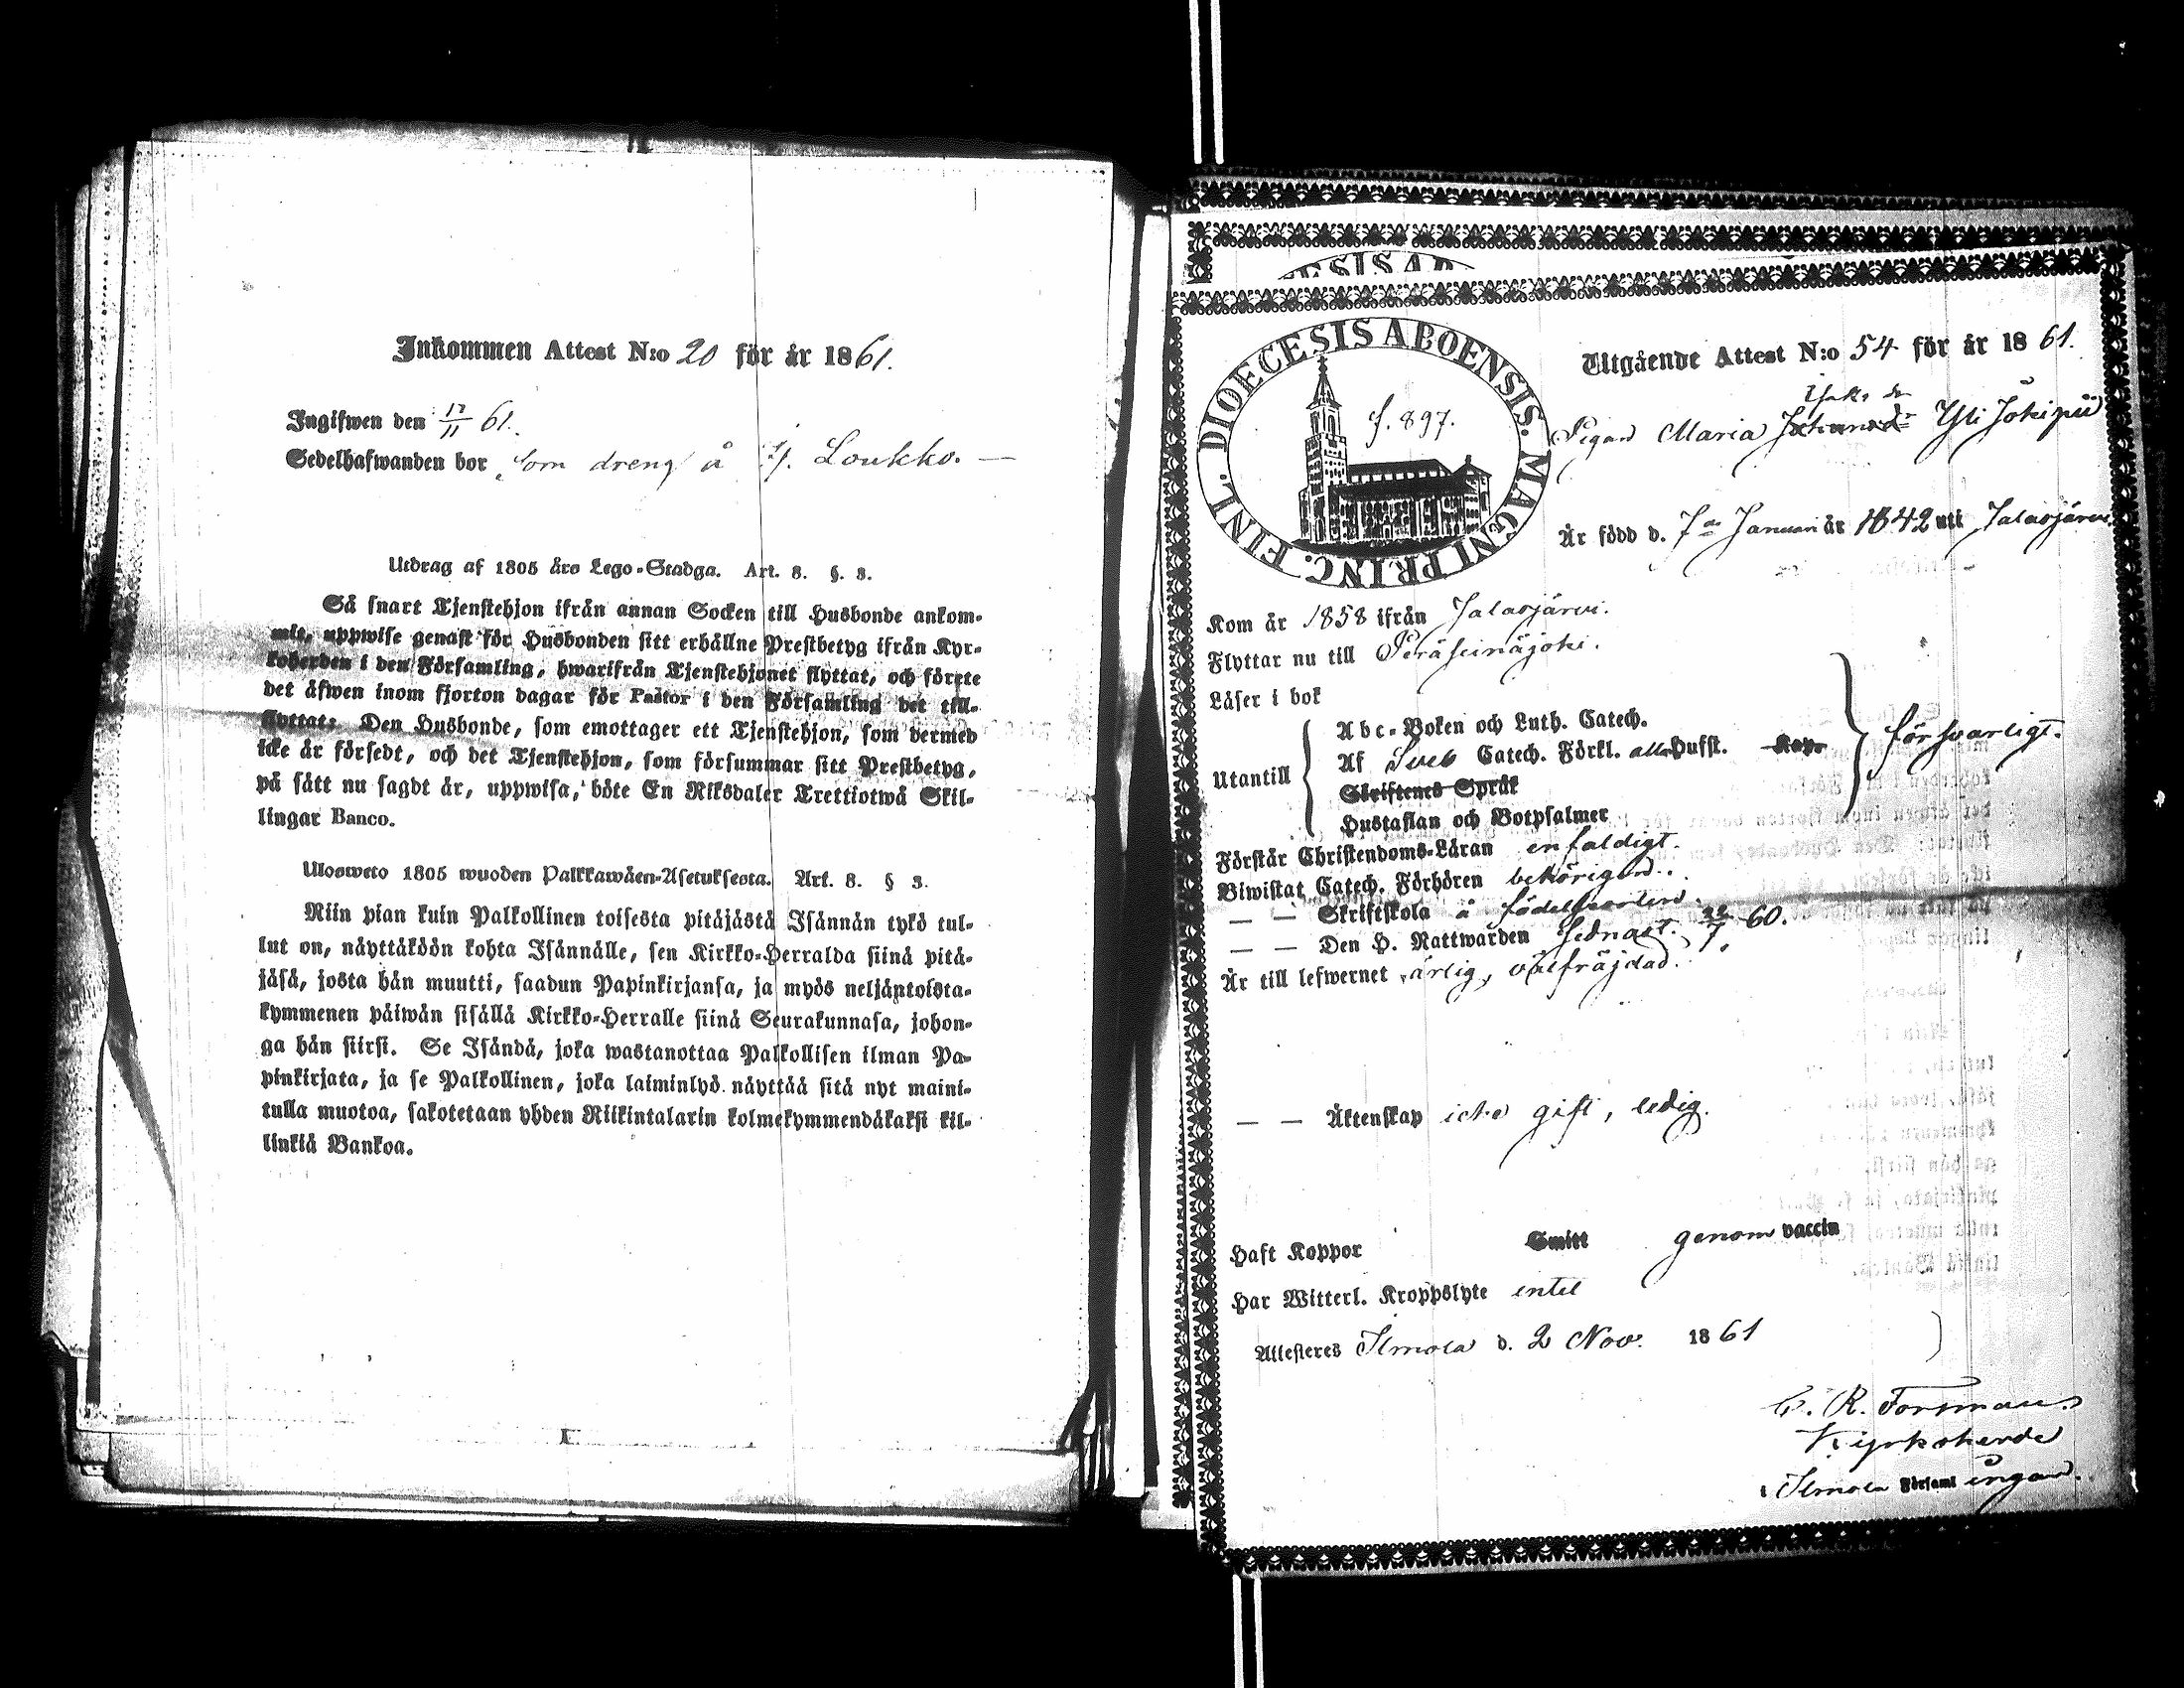 Inkommen Attest N:o 20 för år 1861.
Ingifwen den 17/11 61.
Sedelhafwanden bor som dreng å Y. Loukko. —
Utdrag af 1805 års Lego-Stadga. Art. 8. §. 3.
Så snart Tjenstehjon ifrån annan Socken till Husbonde ankom-
mit, uppwise genast för Husbonden sitt erhållne Prestbetyg ifrån Kyr-
koherden i den Församling, hwarifrån Tjenstehjonet flyttat, och förete
det äfwen inom fjorton dagar för Pastor i den Församling det till-
flyttat. Den Husbonde, som emottager ett Tjenstehjon, som dermed
icke är försedt, och det Tjenstehjon, som försummar sitt Prestbetyg,
på sätt nu sagdt är, uppwisa, böte En Riksdaler Trettiotwå Skil-
lingar Banco.
Ulosweto 1805 wuoden Palkkawäen-Asetuksesta. Art. 8. § 3.
Niin pian kuin Palkollinen toisesta pitäjästä Isännän tykö tul-
lut on, näyttäköön kohta Isännälle, sen Kirkko-Herralda siinä pitä-
jäsä, josta hän muutti, saadun Papinkirjansa, ja myös neljäntoista-
kymmenen päiwän sisällä Kirkko-Herralle siinä Seurakunnasa, johon-
ga hän siirsi. Se Isändä, joka wastanottaa Palkollisen ilman Pa-
pinkirjata, ja se Palkollinen, joka laiminlyö näyttää sitä nyt maini-
tulla muotoa, sakotetaan yhden Riikintalarin kolmekymmendäkaksi kil-
linkiä Bankoa.
ESIS AB
DIOECESIS ABOENSIS. MAGNI PRINC. FINL.
f. 897.
Utgående Attest N:o 54 för år 1861.
Isaks dr
Pigan Maria Johansdr Yli Jokipii
Är född d. 7de Januari år 1842 uti Jalasjärvi
Kom år 1858 ifrån Jalasjärvi.
Flyttar nu till Peräseinäjoki.
Läser i bok
Utantill
Abc-Boken och Luth. Catech.
Af Sveb Catech. Förkl. alla Hufst. Kap.
Skriftenes Språk
Hustaflan och Botpsalmer
försvarligt.
Förstår Christendoms-Läran enfaldigt.
Biwistat Catech. Förhören behörigen.
— — Skriftskola å födelseorten.
— — Den H. Nattwarden sednast 22/7 60.
Är till lefwernet ärlig, välfräjdad.
— — Äktenskap icke gift, ledig.
Haft Koppor Smitt genom vaccin
Har Witterl. Kroppslyte intet
Attesteres Ilmola d. 2 Nov. 1861
C. R. Forsman
Kyrkoherde
i Ilmola Församlingan.